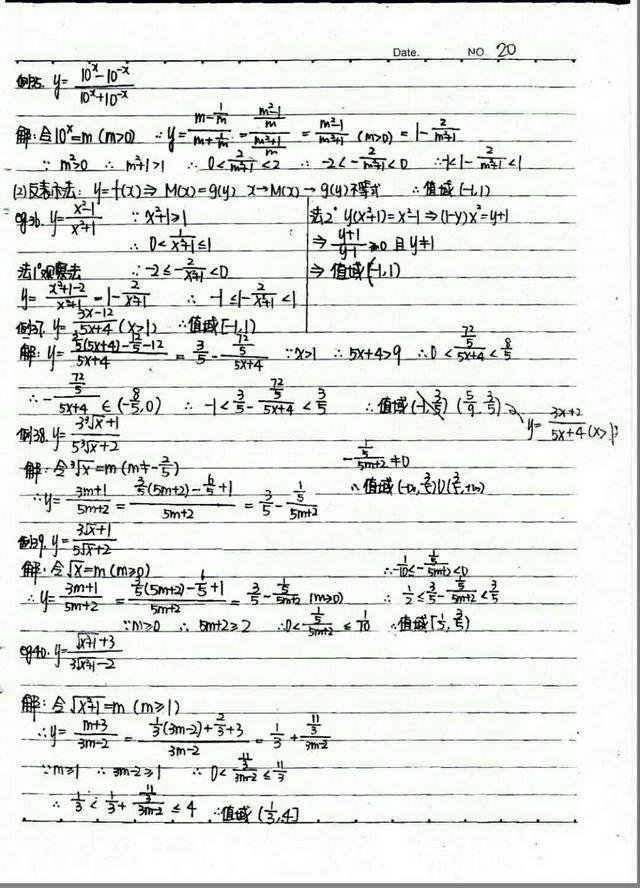 Date. NO. 20
例35. y = (10^x - 10^-x)/(10^x + 10^-x)
解: 令10^x = m (m>0) ∴ y = (m - 1/m)/(m + 1/m) = ((m²-1)/m)/((m²+1)/m) = (m²-1)/(m²+1) (m>0) = 1 - 2/(m²+1)
∵ m²>0 ∴ m²+1>1 ∴ 0 < 2/(m²+1) < 2 ∴ -2 < -2/(m²+1) < 0 ∴ -1 < 1 - 2/(m²+1) < 1
(2) 反表示法: y = f(x) ⇒ M(x) = g(y) x → M(x) → g(y) 不等式 ∴ 值域 (-1,1)
eg36. y = (x²-1)/(x²+1) ∵ x²+1 ≥ 1
∴ 0 < 1/(x²+1) ≤ 1
法1° 观察法 ∴ -2 ≤ -2/(x²+1) < 0
y = (x²+1-2)/(x²+1) = 1 - 2/(x²+1) ∴ -1 ≤ 1 - 2/(x²+1) < 1
∴ 值域 [-1,1)
法2° y(x²+1) = x²-1 ⇒ (1-y)x² = y+1
⇒ (y+1)/(y-1) ≥0 且 y≠1
⇒ 值域 [-1,1)
例37. y = (3x-12)/(5x+4) (x>1)
解: y = (3/5(5x+4) - 12/5 - 12)/(5x+4) = 3/5 - (72/5)/(5x+4) ∵ x>1 ∴ 5x+4>9 ∴ 0 < (72/5)/(5x+4) < 8/5
∴ -(72/5)/(5x+4) ∈ (-8/5, 0) ∴ -1 < 3/5 - (72/5)/(5x+4) < 3/5 ∴ 值域 (-1, 3/5) (5/9, 3/5) → y = (3x+2)/(5x+4) (x>1)
例38. y = (3∛x+1)/(5∛x+2)
解: 令∛x = m (m ≠ -2/5) -(1/5)/(5m+2) ≠ 0
∴ y = (3m+1)/(5m+2) = (3/5(5m+2) - 6/5 + 1)/(5m+2) = 3/5 - (1/5)/(5m+2) ∴ 值域 (-∞, 3/5)∪(3/5, +∞)
例39. y = (3√x+1)/(5√x+2)
解: 令√x = m (m≥0) ∴ -1/10 ≤ -(1/5)/(5m+2) < 0
∴ y = (3m+1)/(5m+2) = (3/5(5m+2) - 6/5 + 1)/(5m+2) = 3/5 - (1/5)/(5m+2) (m≥0) ∴ 1/2 ≤ 3/5 - (1/5)/(5m+2) < 3/5
∵ m≥0 ∴ 5m+2 ≥ 2 ∴ 0 < (1/5)/(5m+2) ≤ 1/10 ∴ 值域 [1/2, 3/5)
eg40. y = (√(x²+1)+3)/(3√(x²+1)-2)
解: 令√(x²+1) = m (m≥1)
∴ y = (m+3)/(3m-2) = (1/3(3m-2) + 2/3 + 3)/(3m-2) = 1/3 + (11/3)/(3m-2)
∵ m≥1 ∴ 3m-2 ≥ 1 ∴ 0 < (11/3)/(3m-2) ≤ 11/3
∴ 1/3 < 1/3 + (11/3)/(3m-2) ≤ 4 ∴ 值域 (1/3, 4]